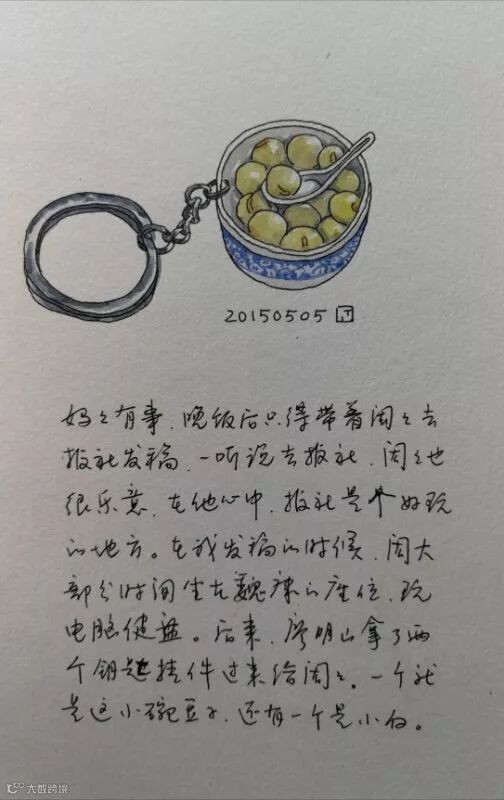 20150505
妈々有事，晚饭后只得带着闹々去
报社发稿，一听说去报社，闹々也
很乐意，在他心中，报社是个好玩
的地方。在我发稿的时候，闹大
部分时间坐在魏康的座位，玩
电脑键盘。后来，廖明山拿了两
个钥匙挂件过来给闹々。一个就
是这小碗豆子，还有一个是小白。
大数跨境